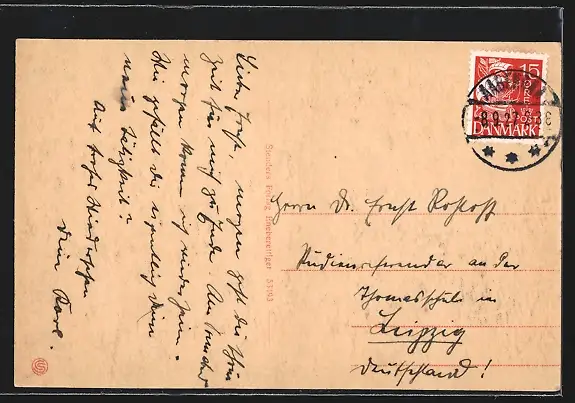 Lieber Ernst, morgen geht die schöne
Zeit für mich zu Ende. Am
morgen komm ich wieder heim.
Wie gefällt dir eigentlich deine
neue Tätigkeit?
Auf frohes Wiedersehen
Dein Karl.
Stenders Forlag Eneberettiget 53193
15
ØRE
POST
DANMARK
8.9.27
Herrn Dr. Ernst Rohloff
Studienreferendar an der
Thomasschule in
Leipzig
Deutschland!